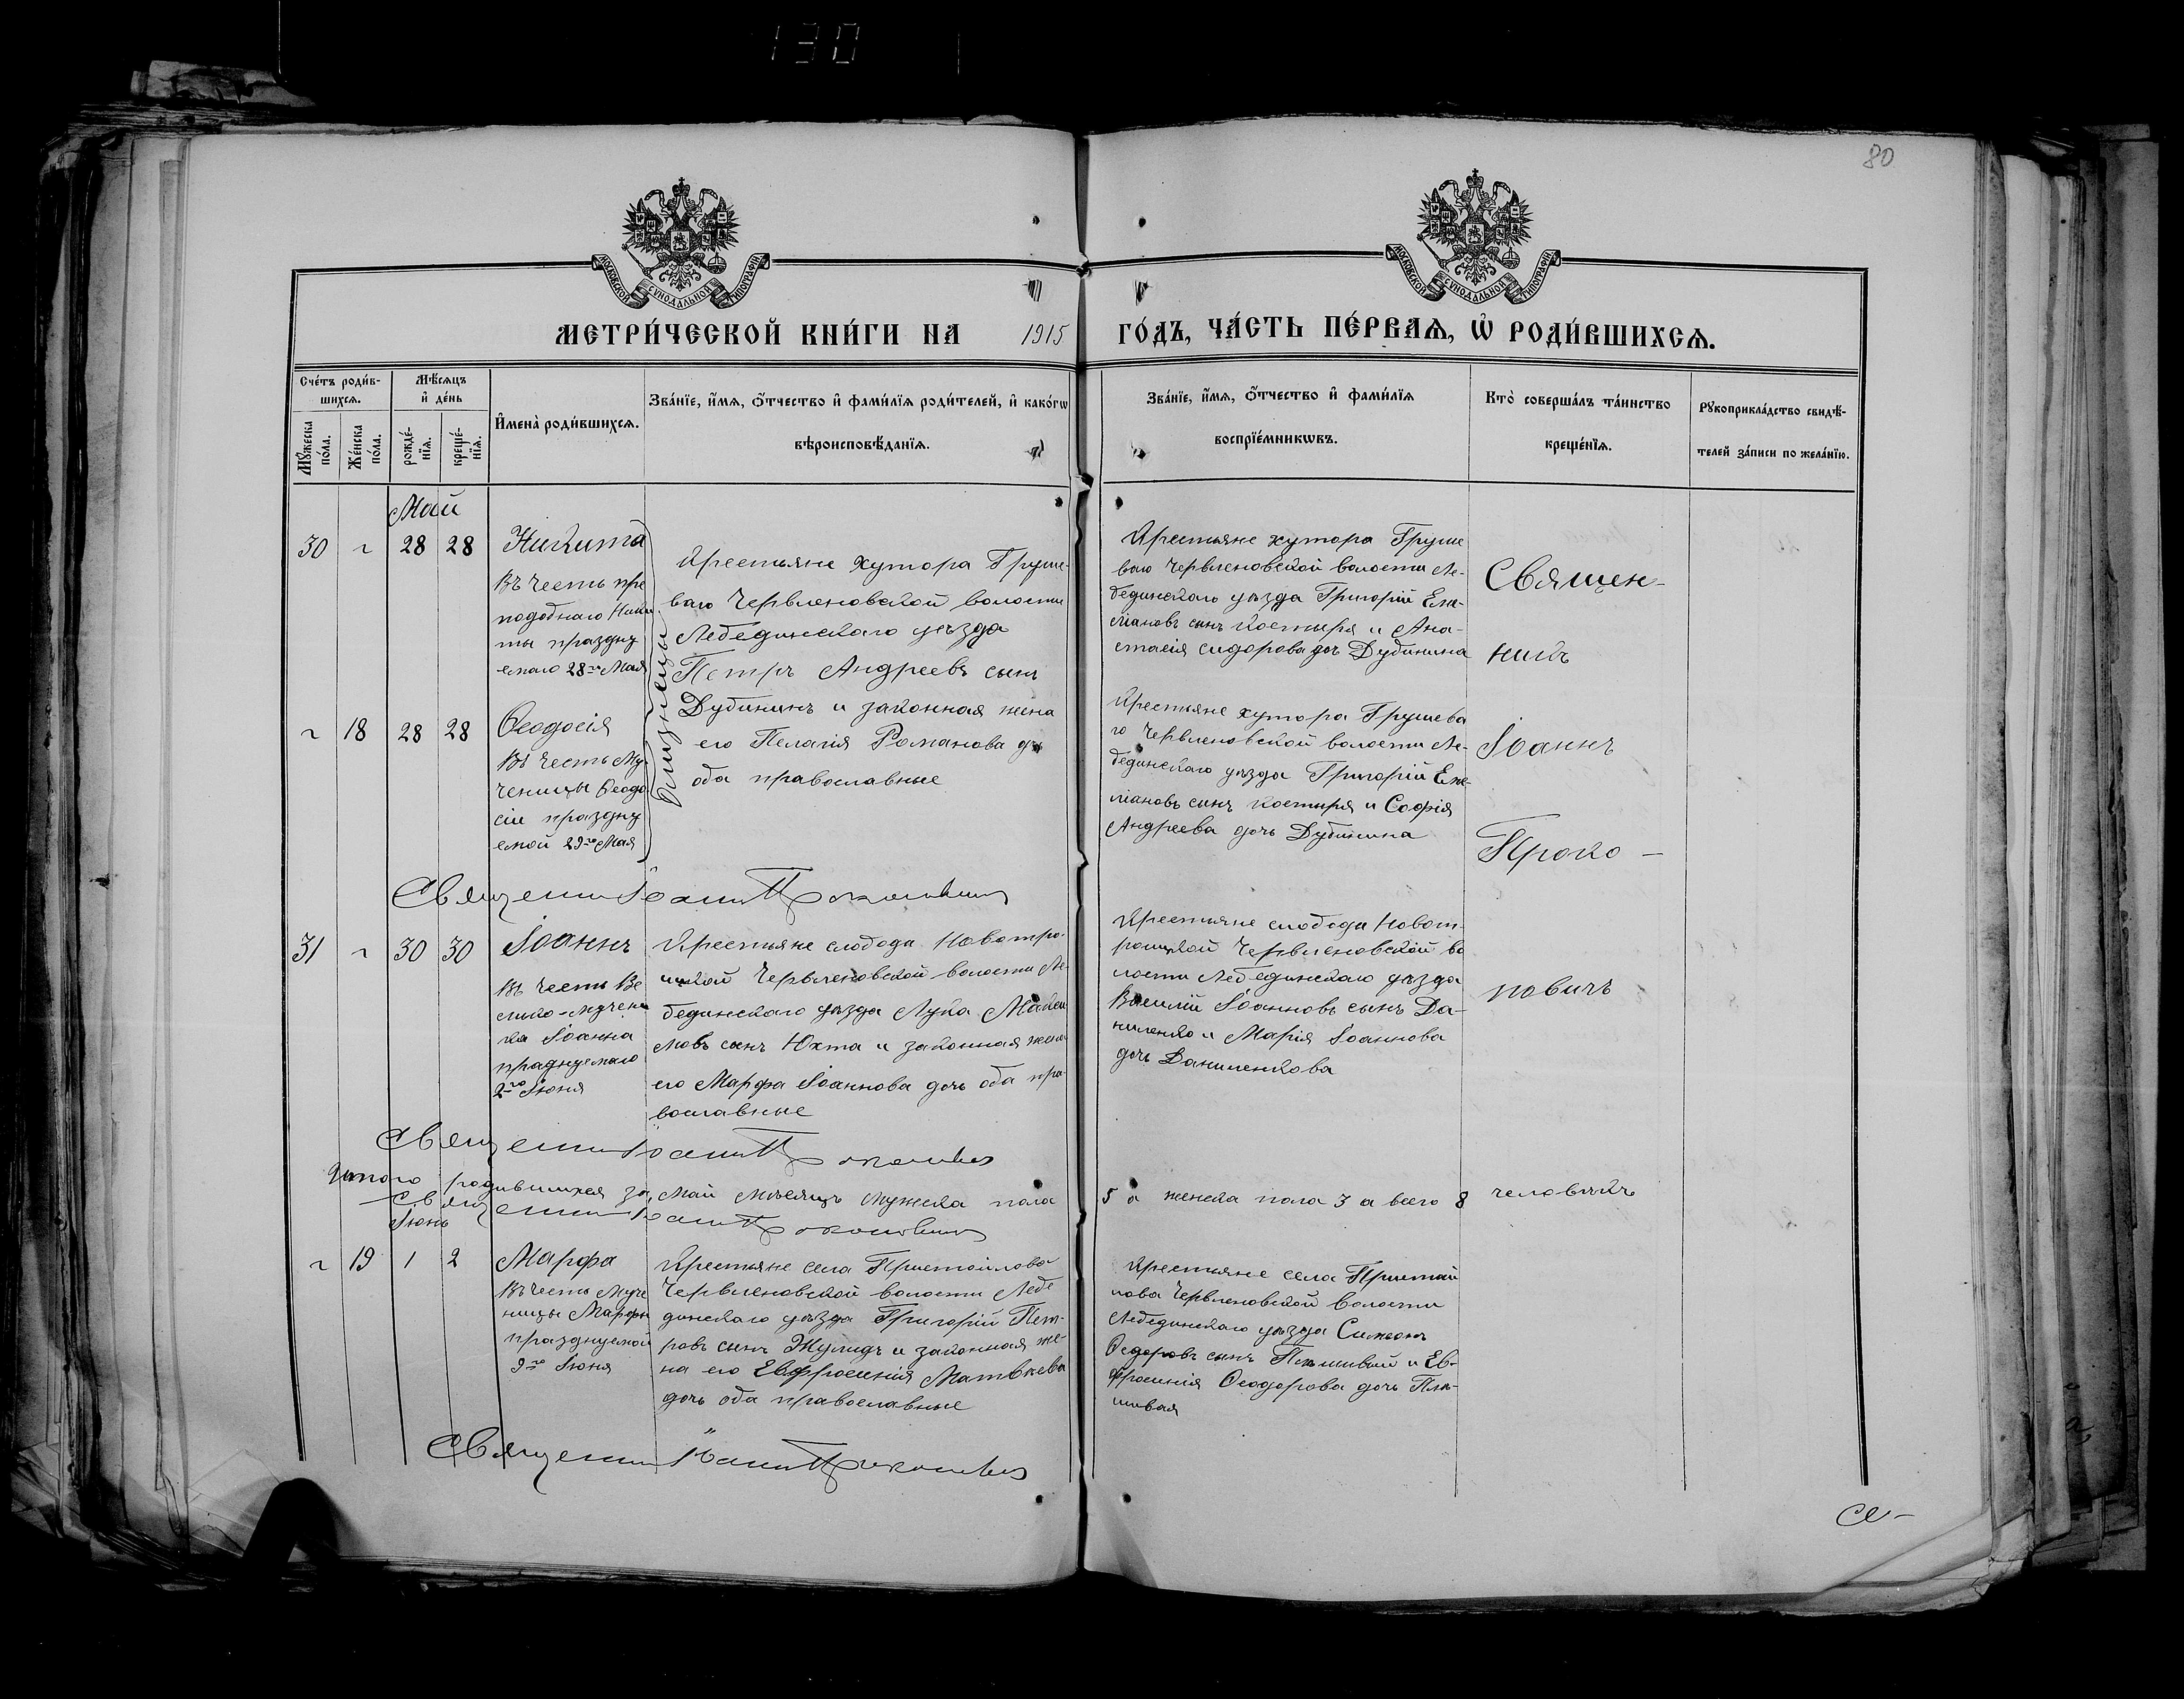 130
80
МОСКОВСКОЙ СѴНОДАЛЬНОЙ ТИПОГРАФІИ
МОСКОВСКОЙ СѴНОДАЛЬНОЙ ТИПОГРАФІИ
МЕТРИ́ЧЕСКОЙ КНИ́ГИ НА 1915 ГО́ДЪ, ЧА́СТЬ ПЕ́РВАѦ, Ѡ҆ РОДИ́ВШИХСѦ.
Сче́тъ роди́в-
шихсѧ.
Мѣ́сѧцъ
и҆ де́нь
Мꙋ́жеска
по́ла.
Же́нска
по́ла.
рожде́-
нїѧ.
креще́-
нїѧ.
И҆мена̀ роди́вшихсѧ.
Зва́нїе, и҆́мѧ, ѻ҆́тчество и҆ фами́лїѧ роди́телей, и҆ како́гѡ
вѣроисповѣ́данїѧ.
Зва́нїе, и҆́мѧ, ѻ҆́тчество и҆ фами́лїѧ
воспрїе́мникѡвъ.
Кто̀ соверша́лъ та́инство
креще́нїѧ.
Рꙋкоприкла́дство свидѣ́-
телей за́писи по жела́нїю.
Май
30 ~ 28 28 Никита
Въ честь пре
подобнаго Ники
ты праздну
емаго 28го Мая
~ 18 28 28 Ѳеодосія
Въ честь Му-
ченицы Ѳеодо
сіи праздну
емой 29го Мая
близнецы
Крестьяне хутора Груше-
ваго Червленовской волости
Лебединскаго уѣзда
Петръ Андреевъ сынъ
Дубининъ и законная жена
его Пелагія Романова дчь
оба православные
Крестьяне хутора Груше
ваго Червленовской волости Ле-
бединскаго уѣзда Григорій Еме-
ліановъ сынъ Костыря и Ана-
стасія Сидорова дчь Дубинина
Крестьяне хутора Грушева
го Червленовской волости Ле-
бединскаго уѣзда Григорій Еме-
ліановъ сынъ Костыря и Софія
Андреева дочь Дубинина
Священ-
никъ
Іоаннъ
Проко-
повичъ
Священникъ Іоаннъ Прокоповичъ
31 ~ 30 30 Іоаннъ
Въ честь Ве
лико-мучени
ка Іоанна
празднуемаго
2го Іюня
Крестьяне слободы Новотро-
ицкой Червленовской волости Ле-
бединскаго уѣзда Лука Макси
мовъ сынъ Юхта и законная жена
его Марфа Іоаннова дочь оба пра-
вославные
Крестьяне слободы Новот-
роицкой Червленовской во
лости Лебединскаго уѣзда
Василій Іоанновъ сынъ Да-
ниленко и Марія Іоаннова
дочь Даниленкова
Священникъ Іоаннъ Прокоповичъ
Итого родившихся за Май мѣсяцъ мужска пола 5 а женска пола 3 а всего 8 человѣкъ
Священникъ Іоаннъ Прокоповичъ
Іюнь
~ 19 1 2 Марфа
Въ честь муче
ницы Марфы
празднуемой
9го Іюня
Крестьяне села Пристайлова
Червленовской волости Лебе
динскаго уѣзда Григорій Пет-
ровъ сынъ Жулидъ и законная же-
на его Евфросинія Матвѣева
дочь оба православные
Крестьяне села Пристай
лова Червленовской волости
Лебединскаго уѣзда Симеонъ
Ѳедоровъ сынъ Плешивый и Ев-
фросинія Ѳеодорова дочь Пле-
шивая
Священникъ Іоаннъ Прокоповичъ